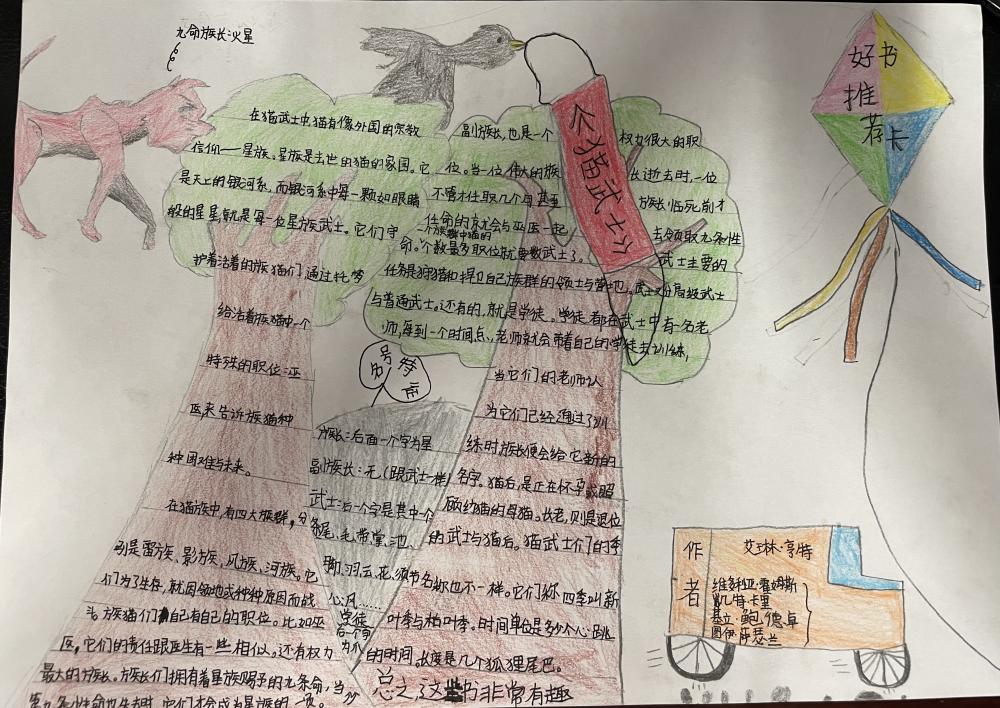 九命族长:火星
好书
推
荐卡
《猫武士》
在猫武士中,猫有像外国的宗教
信仰——星族。星族是去世的猫的家园。它
是天上的银河系,而银河系中每一颗如眼睛
般的星星就是每一位星族武士。它们守
护着活着的族猫们通过托梦
给活着族猫中一个
特殊的职位:巫
医,来告诉族猫种
种困难与未来。
在猫族中,有四大族群,分
别是雷族、影族、风族、河族。它
们为了生存,就因领地或种种原因而战
斗。族猫们自己有自己的职位。比如巫
医,它们的责任跟医生有一些相似。还有权力
最大的族长。族长们拥有着星族赐予的九条命,当
第九条生命也失去时,它们才会成为星族的一员。
副族长,也是一个权力很大的职
位。当一位伟大的族长逝去时,一位
不管才任职几个月甚至族长临死前才
任命的就会与巫医一起去领取九条性
命。一个族群中猫的个数最多职位就要数武士了。武士主要的
任务是狩猎和捍卫自己族群的领土与营地。武士又分高级武士
与普通武士。还有的,就是学徒,学徒都在武士中有一名老
师,每到一个时间点,老师就会带着自己的学徒去训练,
当它们的老师认
为它们已经通过了训
练时族长便会给它新的
名字。猫后,是正在怀孕或照
顾幼猫的母猫。长老,则是退位
的武士与猫后。猫武士们的季
节名称也不一样。它们称四季叫新
叶季与枯叶季。时间单位是多少个心跳
的时间。长度是几个狐狸尾巴。
总之了这些书非常有趣
特征
名号
族长:后面一个字为星
副族长:无(跟武士一样)
武士:后一个字是其中一个
尾、毛、带、掌、池、
脚、羽、云、花、须
心、风……
学徒
后一个字
为爪
作者
艾琳·亨特
维多利亚·霍姆斯
凯特·卡里
基立·鲍德卓
图伊·萨瑟兰